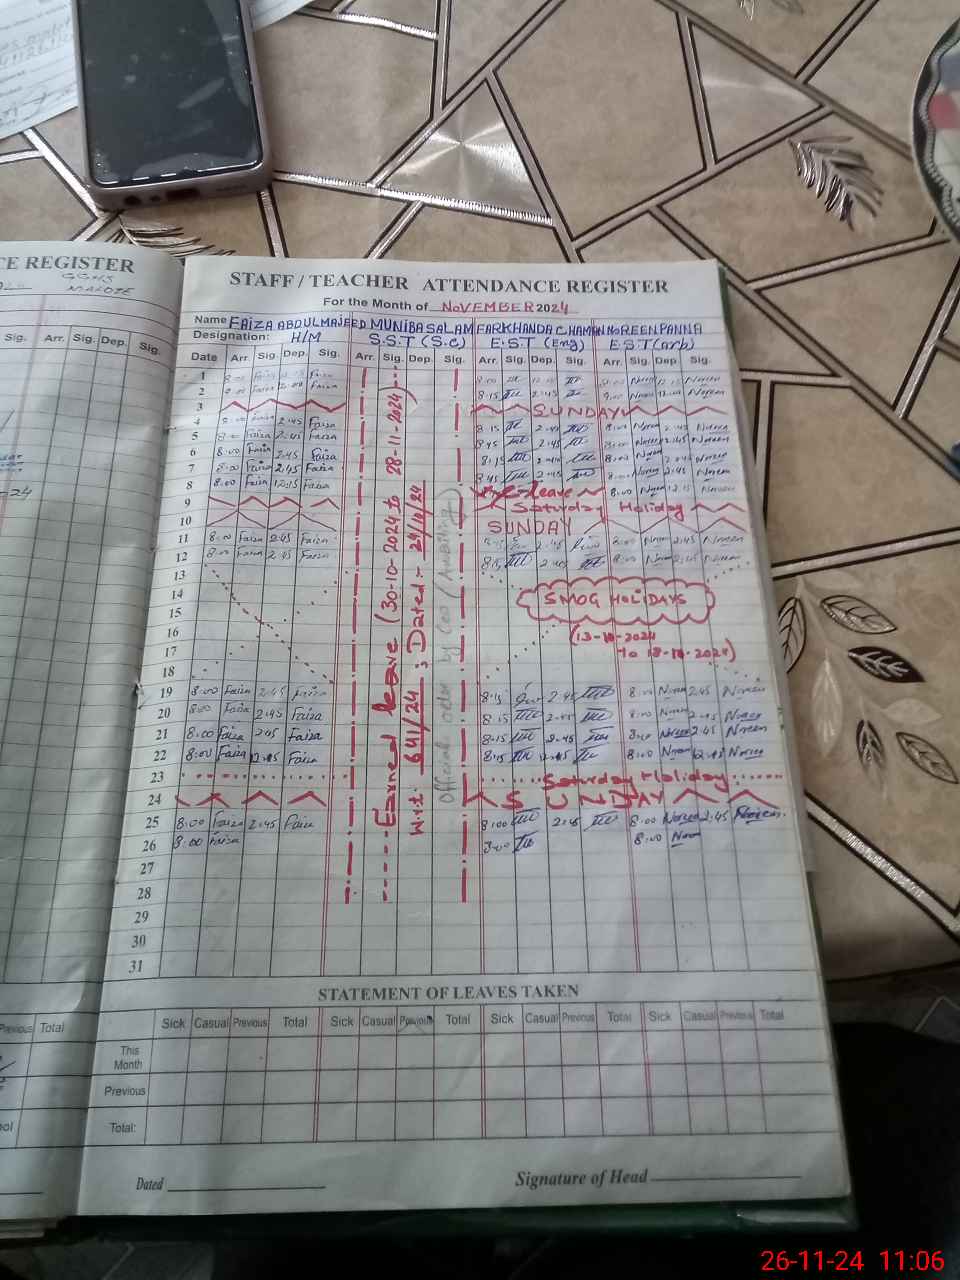 CE REGISTER
GGHS
MALOTE
Sig. Arr. Sig. Dep. Sig.
STAFF / TEACHER ATTENDANCE REGISTER
For the Month of NOVEMBER 2024
Name FAIZA ABDULMAJEED MUNIBA SALAM FARKHANDA CHAMAN NOREEN PANNA
Designation: H/M S.S.T (S.c) E.S.T (Eng) E.S.T (arb)
Date Arr. Sig. Dep. Sig. Arr. Sig. Dep. Sig. Arr. Sig. Dep. Sig. Arr. Sig. Dep. Sig.
1 8:00 Faiza 12:15 Faiza 8:00 12:15 8:00 Noreen 12:15 Noreen
2 8:00 Faiza 2:00 Faiza 8:15 2:45 Noreen
3 SUNDAY
4 8:00 Faiza 2:45 Faiza 8:15 2:45 8:00 Noreen 2:45 Noreen
5 8:00 Faiza 2:45 Faiza 2:45 8:00 Noreen 2:45 Noreen
6 8:00 Faiza 2:45 Faiza 8:15 8:00 Noreen 2:45 Noreen
7 8:00 Faiza 2:45 Faiza 2:45 8:00 Noreen 2:45 Noreen
8 8:00 Faiza 12:15 Faiza leave 8:00 Noreen 12:15 Noreen
9 Saturday Holiday
10 SUNDAY
11 8:00 Faiza 2:45 Faiza 2:45 8:00 Noreen 2:45 Noreen
12 8:00 Faiza 2:45 Faiza 8:15 2:45 8:00 Noreen 2:45 Noreen
13
14 SMOG HOLIDAYS
15
16 (13-10-2024
17 to 18-10-2024)
18
19 8:00 Faiza 2:45 Faiza 8:15 2:45 8:00 Noreen 2:45 Noreen
20 8:00 Faiza 2:45 Faiza 8:15 2:45 8:00 Noreen 2:45 Noreen
21 8:00 Faiza 2:45 Faiza 8:15 2:45 8:00 Noreen 2:45 Noreen
22 8:00 Faiza 12:15 Faiza 8:15 12:15 8:00 Noreen 12:15 Noreen
23 Saturday Holiday
24 SUNDAY
25 8:00 Faiza 2:45 Faiza 8:00 2:45 8:00 Noreen 2:45 Noreen.
26 8:00 Faiza 8:00 8:00 Noreen
27
28
29
30
31
Earned leave (30-10-2024 to 28-11-2024)
w.r.t. 641/24 ; Dated:- 24/10/24
Official order by CEO (Awaiting)
STATEMENT OF LEAVES TAKEN
Previous Total Sick Casual Previous Total Sick Casual Previous Total Sick Casual Previous Total Sick Casual Previous Total
This Month
Previous
Total:
Dated
Signature of Head
26-11-24 11:06